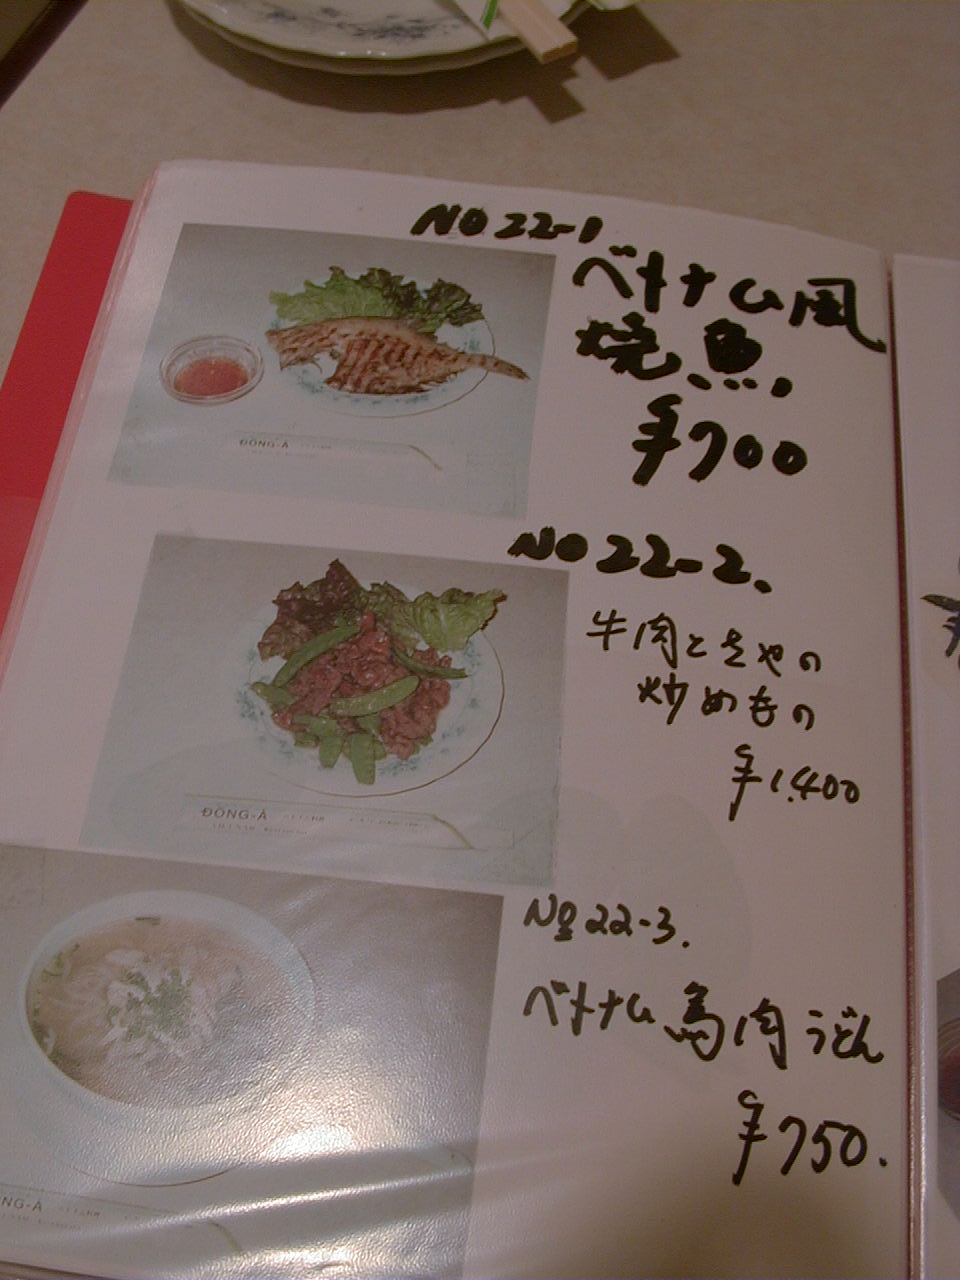 NO 22-1
ベトナム風
焼魚.
¥700
ĐÔNG-Á
NO 22-2.
牛肉ときやの
炒めもの
¥1.400
ĐÔNG-Á
No 22-3.
ベトナム馬肉うどん
¥750.
NG-Á